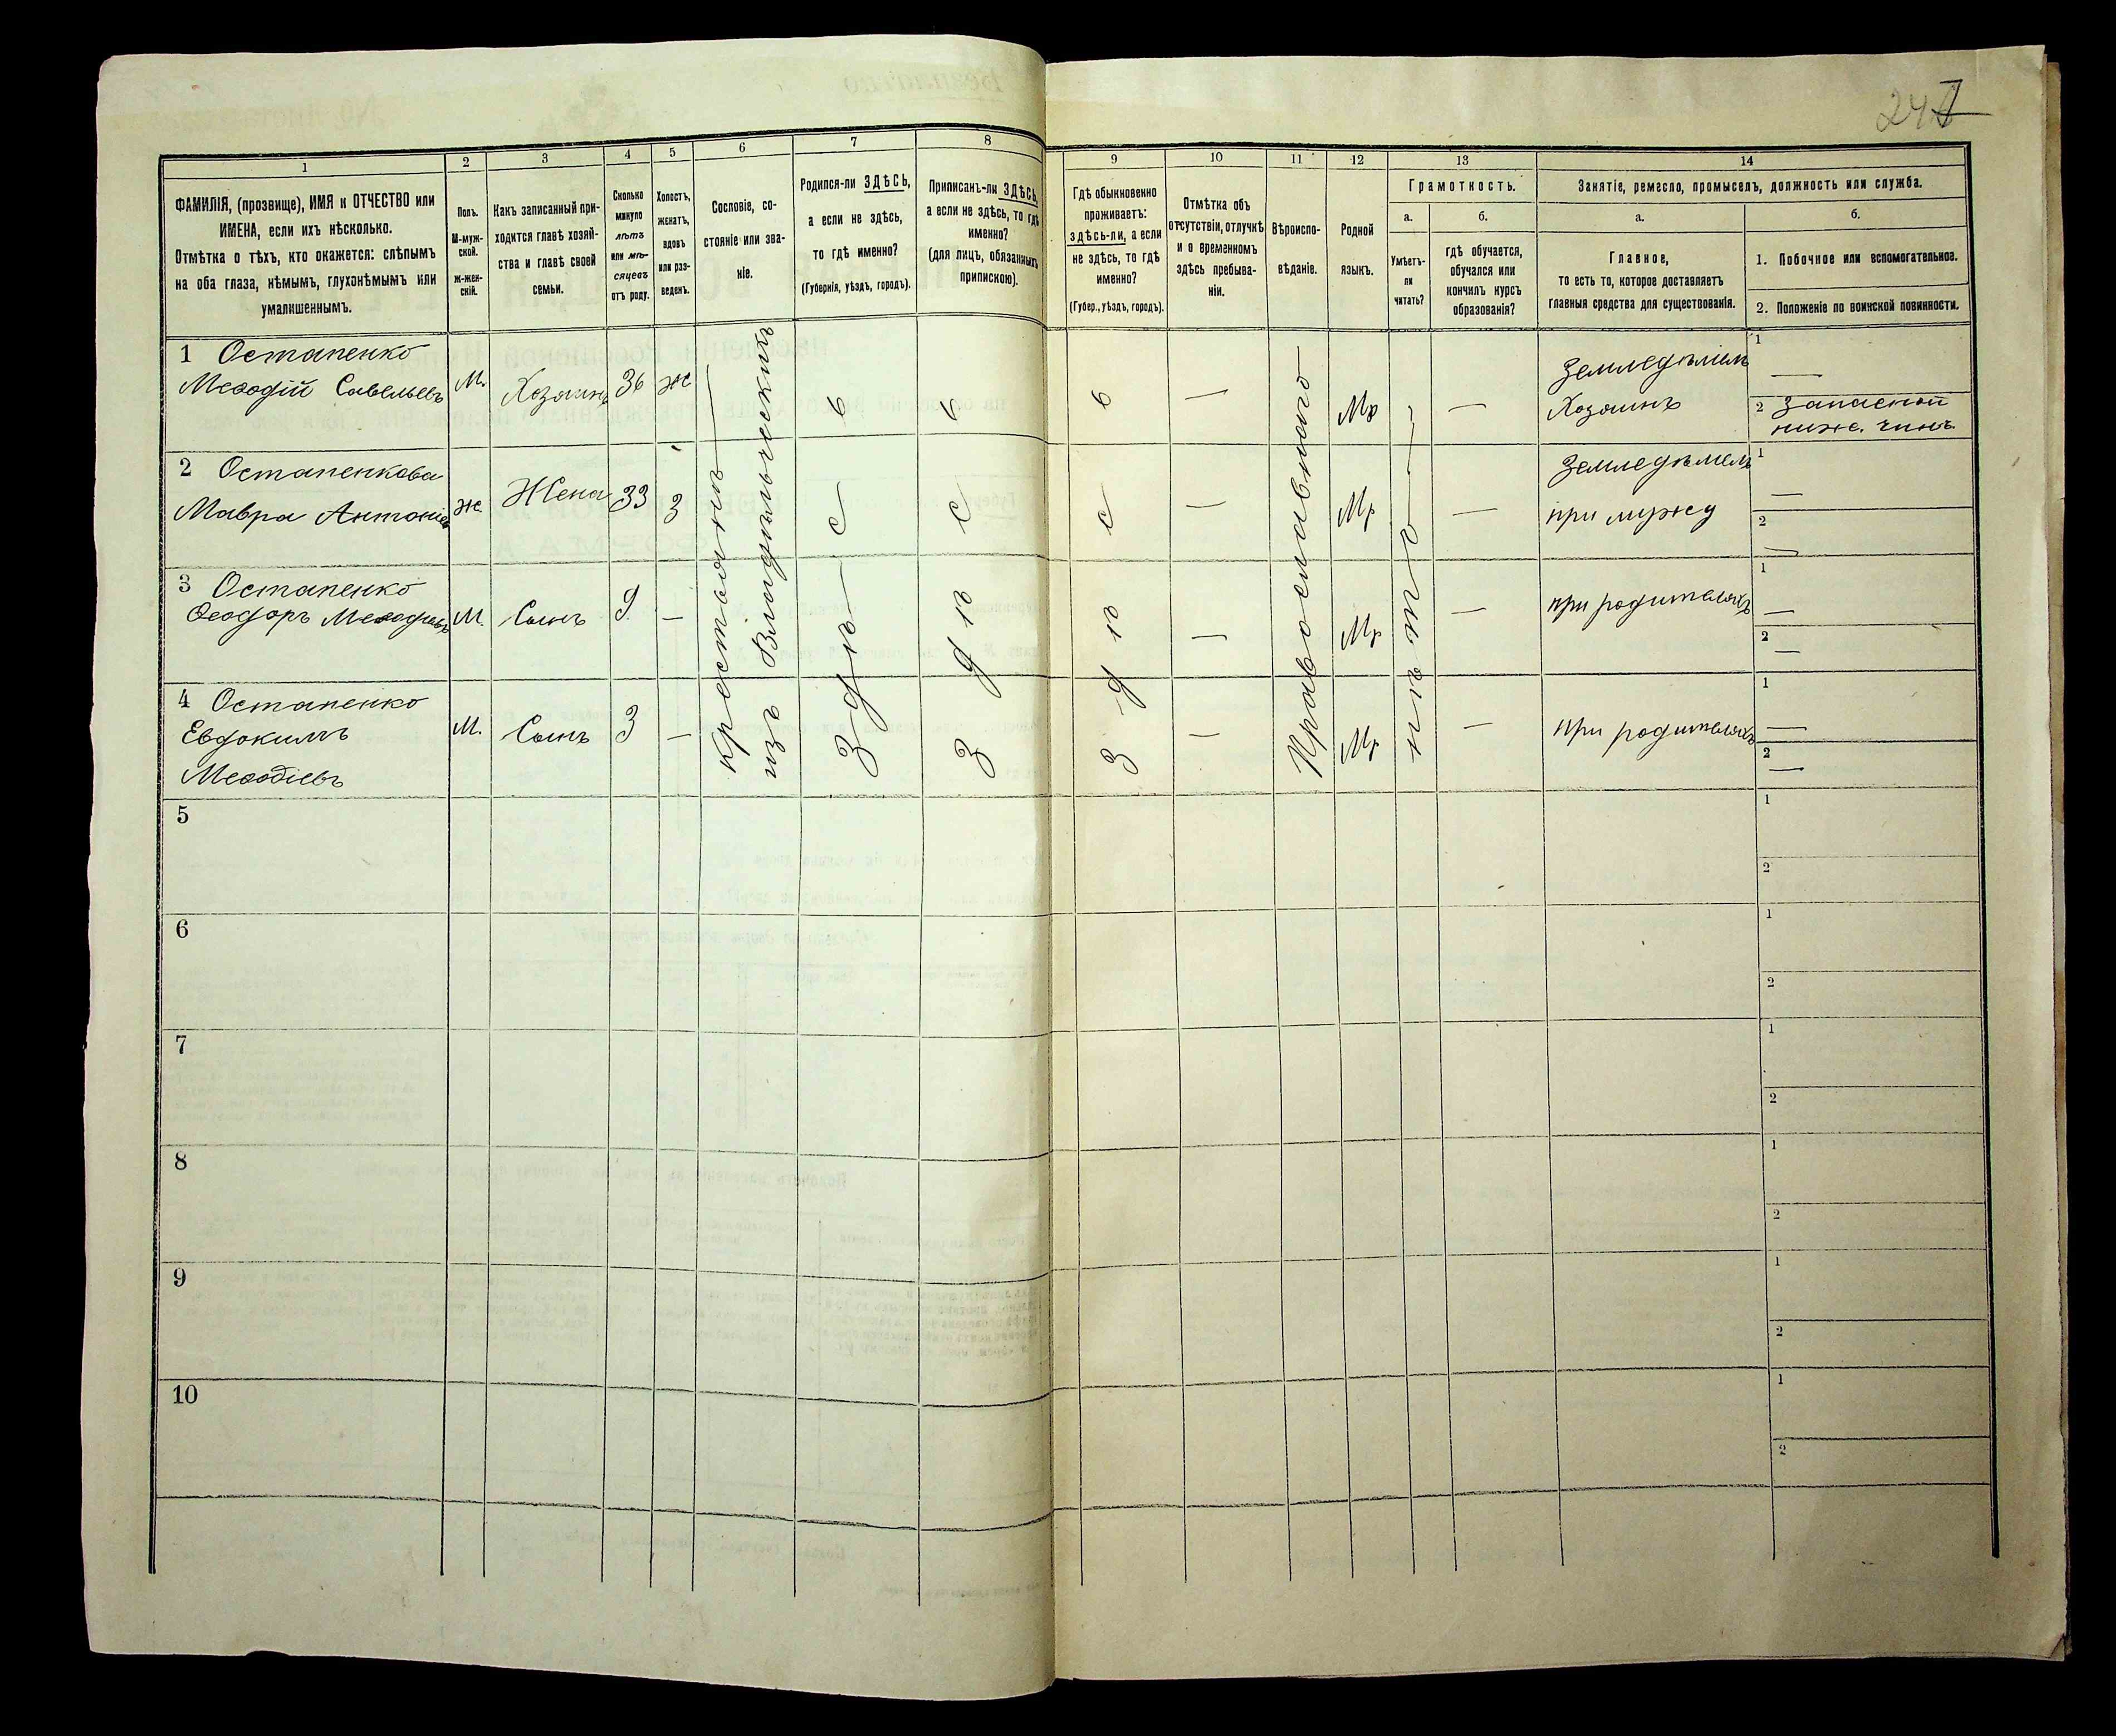 1
2
3
4
5
6
7
8
9
10
11
12
13
14
ФАМИЛІЯ, (прозвище), ИМЯ и ОТЧЕСТВО или
ИМЕНА, если ихъ нѣсколько.
Отмѣтка о тѣхъ, кто окажется: слѣпымъ
на оба глаза, нѣмымъ, глухонѣмымъ или
умалишеннымъ.
Полъ.
М-муж-
ской.
Ж-жен-
скій.
Какъ записанный при-
ходится главѣ хозяй-
ства и главѣ своей
семьи.
Сколько
минуло
лѣтъ
или мѣ-
сяцевъ
отъ роду.
Холостъ,
женатъ,
вдовъ
или раз-
веденъ.
Сословіе, со-
стояніе или зва-
ніе.
Родился-ли ЗДѢСЬ,
а если не здѣсь,
то гдѣ именно?
(Губернія, уѣздъ, городъ).
Приписанъ-ли ЗДѢСЬ,
а если не здѣсь, то гдѣ
именно?
(для лицъ, обязанныхъ
припискою).
Гдѣ обыкновенно
проживаетъ:
здѣсь-ли, а если
не здѣсь, то гдѣ
именно?
(Губер., уѣздъ, городъ).
Отмѣтка объ
отсутствіи, отлучкѣ
и о временномъ
здѣсь пребыва-
ніи.
Вѣроиспо-
вѣданіе.
Родной
языкъ.
Грамотность.
а.
Умѣетъ-
ли
читать?
б.
гдѣ обучается,
обучался или
кончилъ курсъ
образованія?
Занятіе, ремесло, промыселъ, должность или служба.
а.
Главное,
то есть то, которое доставляетъ
главныя средства для существованія.
б.
1. Побочное или вспомогательное.
2. Положеніе по воинской повинности.
1 Остапенко
Меѳодій Савельевъ
М.
Хозяинъ
36
ж
Мр
—
—
Земледѣлецъ
Хозяинъ
1 —
2 Запасной
ниж. чинъ
2 Остапенкова
Мавра
ж
Жена
33
З
—
Мр
—
Земледѣлецъ
при мужу
1 —
2 —
3 Остапенко
Ѳеодоръ Меѳодіевъ
М.
Сынъ
9
—
—
Мр
—
при родителяхъ
1 —
2 —
4 Остапенко
Евдокимъ
Меѳодіевъ
М.
Сынъ
3
—
—
Мр
—
при родителяхъ
1 —
2 —
крестьянинъ
изъ
Здѣсь
Здѣсь
Здѣсь
Православнаго
нѣтъ
5
1
2
6
1
2
7
1
2
8
1
2
9
1
2
10
1
2